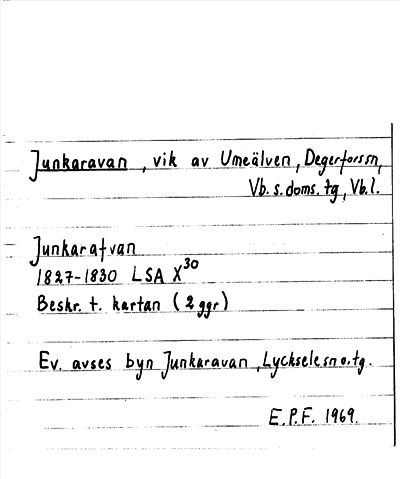 Junkaravan, vik av Umeälven, Degerforssn,
Vb. s. doms. tg, Vb. l.
Junkarafvan
1827-1830 LSA X30
Beskr. t. kartan (2 ggr)
Ev. avses byn Junkaravan, Lyckselesn o. tg.
E.P.F. 1969.